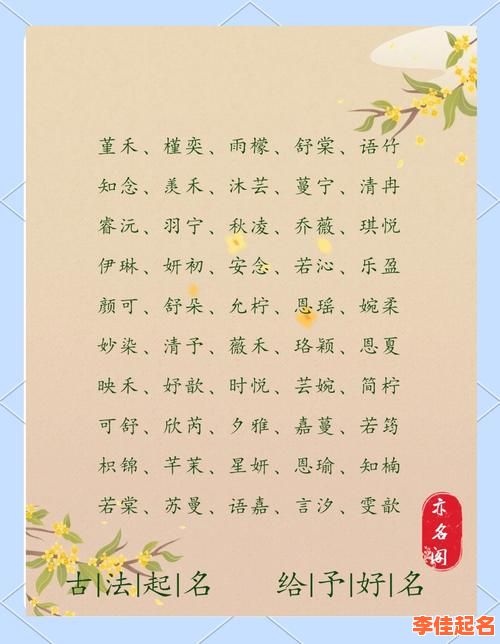 堇禾、槿奕、雨檬、舒棠、语竹
知念、羡禾、沐芸、蔓宁、清冉
睿沅、羽宁、秋凌、乔薇、琪悦
伊琳、妍初、安念、若沁、乐盈
颜可、舒朵、允柠、恩瑶、婉柔
妙染、清予、薇禾、珞颖、恩夏
映禾、妤歆、时悦、芸婉、简柠
可舒、欣芮、夕雅、嘉蔓、若筠
枳锦、芊茉、星妍、恩瑜、知楠
若棠、苏曼、语嘉、言汐、雯歆
亦名阁
古|法|起|名 给|予|好|名
李佳起名